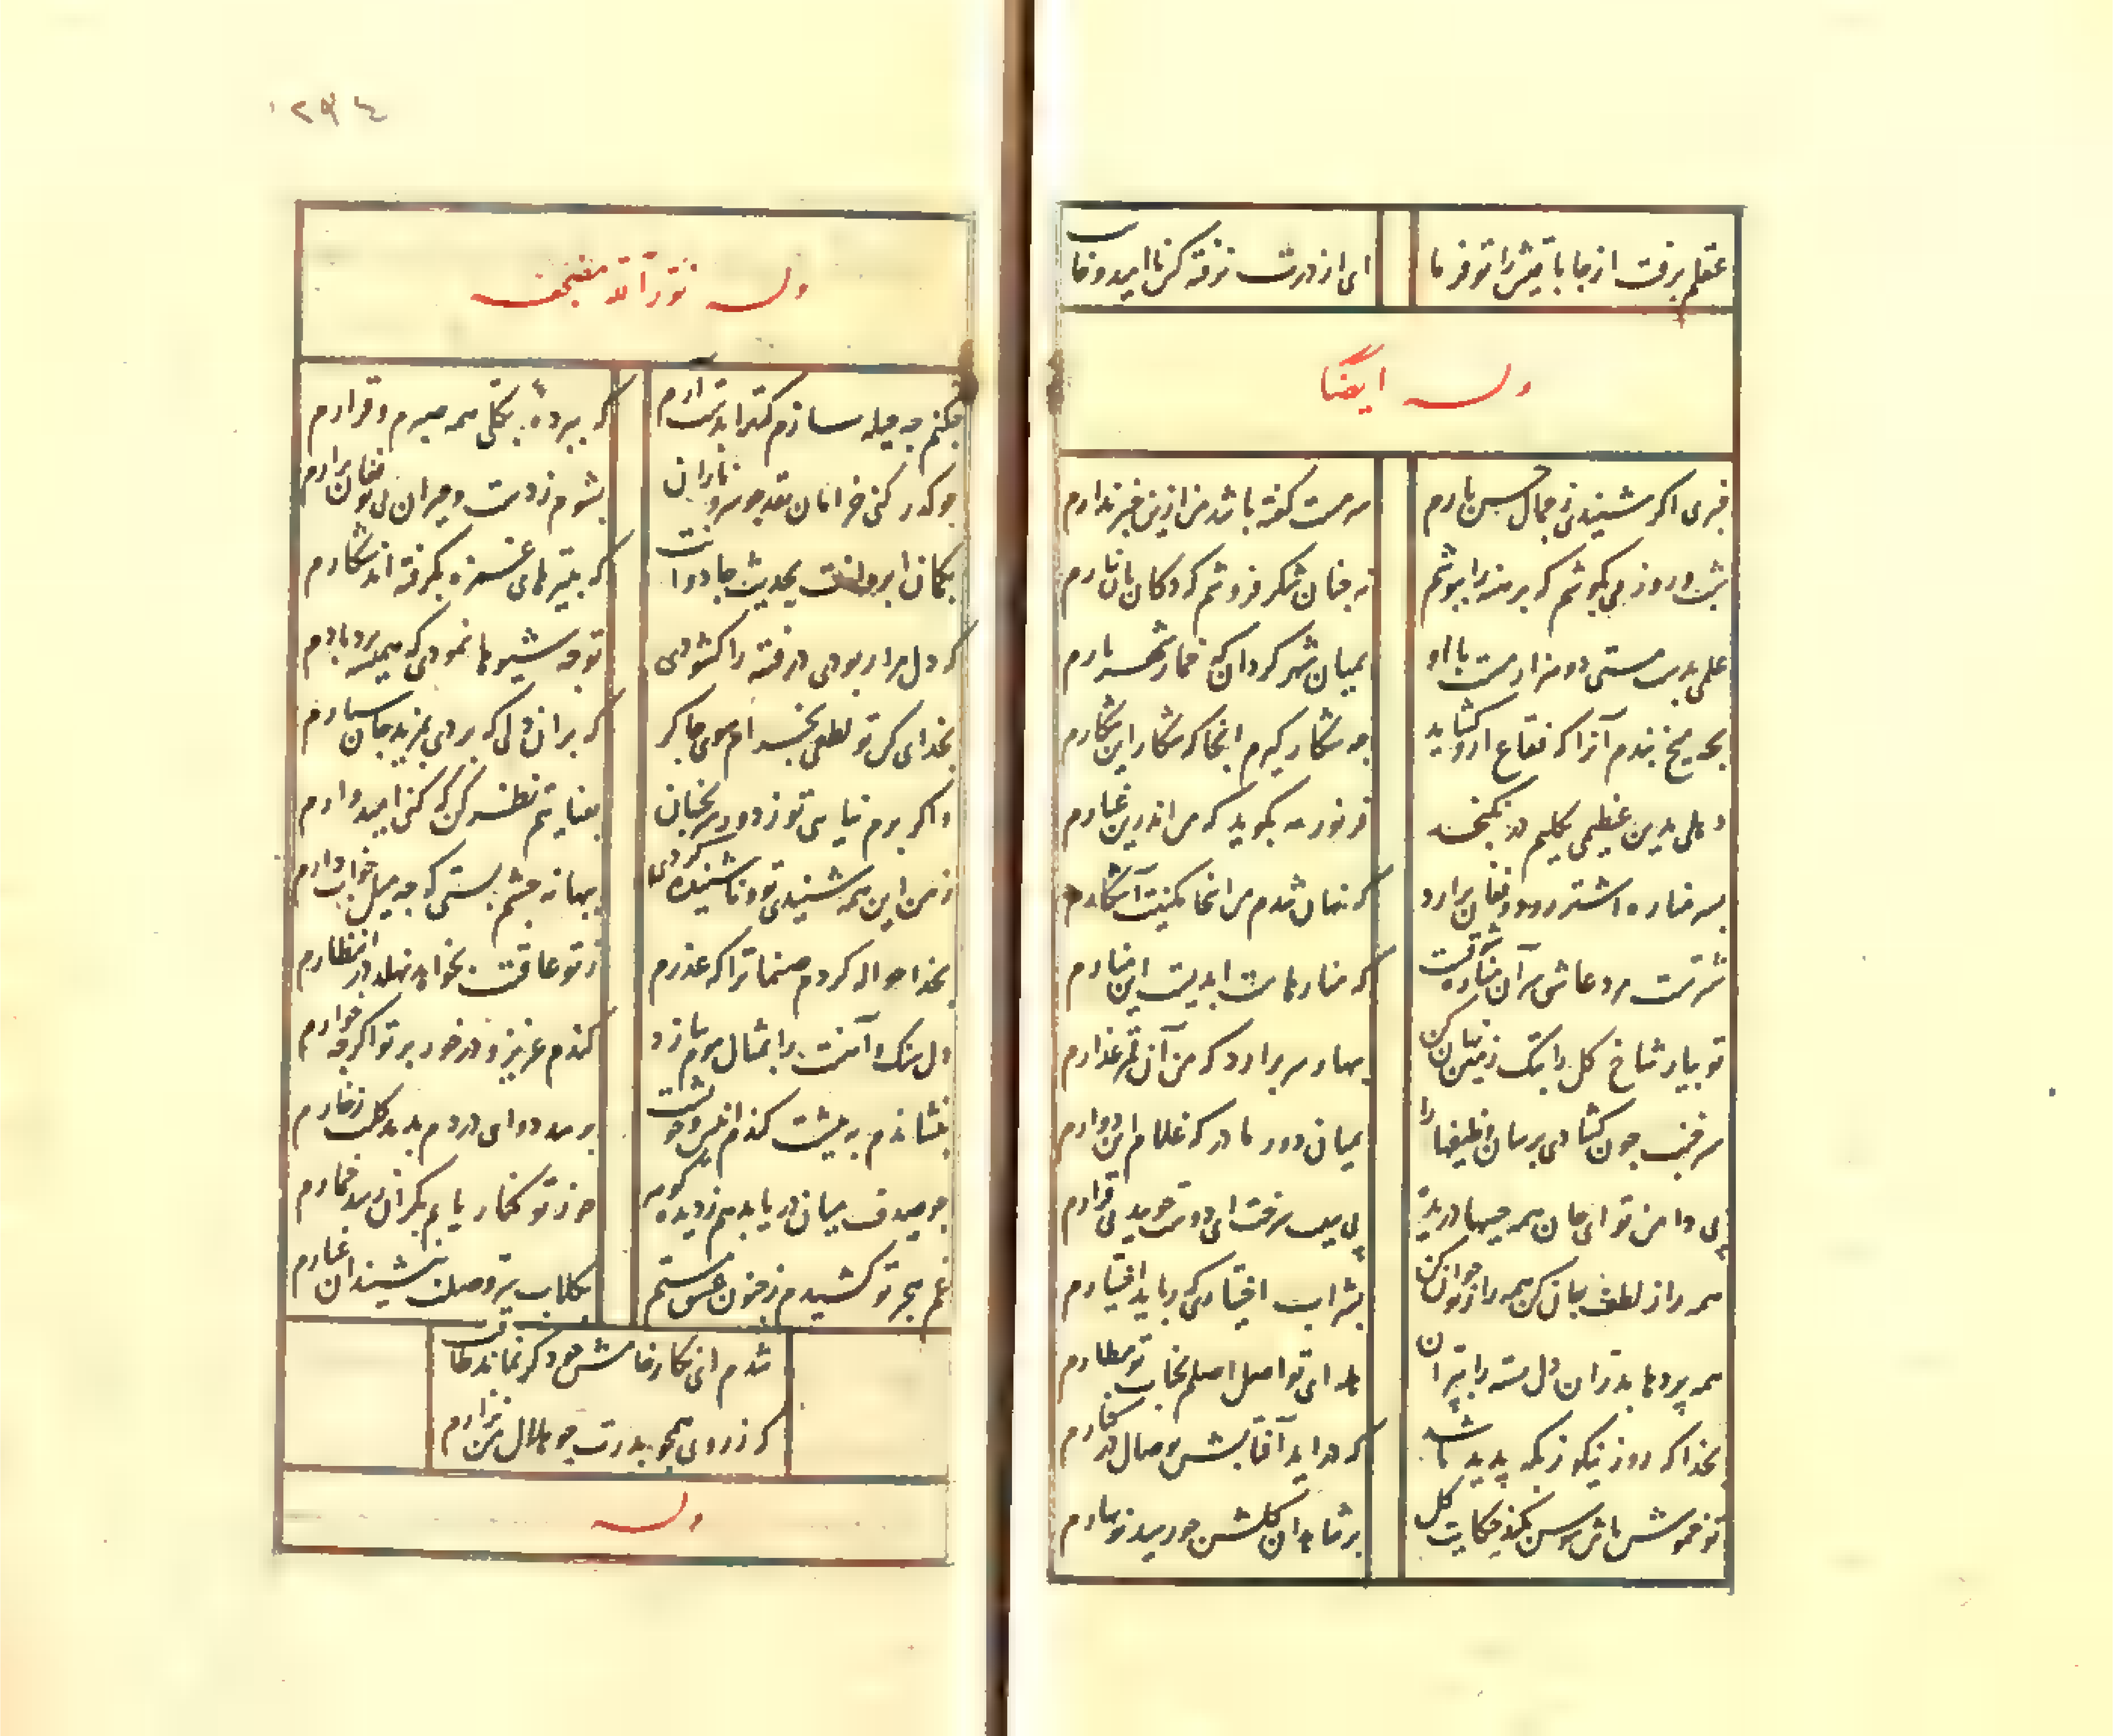 عقلم برفت از جا باقیش را تو فرما
ای از درت نرفته کس ناامید و خایب
وله ایضا
خبری اگر شنیدی ز جمال حسن یارم
سر مست گفته باشد من ازین خبر ندارم
شب و روز می بکوشم که برهنه را بپوشم
نه چنان شکر فروشم که دکان نان نارم
علمی بدست مستی دو هزار مست با او
بمیان شهر گردان که خمار شهریارم
بچه میخ بندم آنرا که فقاع ازو گشاید
چه شکار گیرم آنجا که شکار این شکارم
دهلی بدین عظیمی بگلیم در نگنجد
فر و نور مه بگوید که من اندرین غبارم
بسر مناره اشتر رود و فغان برارد
که نهان شدم من اینجا مکنیت آشکارم
شترست مرد عاشق سر آن مناره عشقست
که منارهاست ابدیست این منارم
تو بیار شاخ گل را بتک زمین نهان کن
بهار سر برارد که من آن قمر عذارم
سر خنب چون گشادی برسان وظیفها را
بمیان دور ما در که غلام این دوارم
پی دامن تو ای جان همه جیبها دریده
پی سیب سرخت ای دوست خوبید بی قرارم
همه را ز لطف جان کن همه را ز نو جوان کن
بشراب اختیاری که رباید اختیارم
همه پردها بدران دل بسته را بپران
هله ای تو اصل اصلم بخاب تو مطارم
بخدا که روز نیکو ز بگه پدید باشد
که دراید آفتابش بوصال در کنارم
تو خموش باش سوسن بکند حکایت گل
بر شاهدان گلشن چو رسید نوبهارم
۲۹٤
وله نور الله مضجعه
چکنم چه حیله سازم که ترا بدست آرم
که ببرده بکلی همه صبرم و قرارم
چو گذر کنی خرامان بقد چو سرو نازان
بشوم ز دست و حیران بی تو فغان برارم
بکمان ابروانت بحدیث جادوانت
که بتیرهای غمزه بگرفته اند شکارم
که دل مرا ربودی در فتنه را گشودی
تو چه شیوها نمودی که همیشه برد بادم
بخدای کن تو لطفی بخرام سوی چاکر
که بران دلی که بردی بمزید جان سپارم
و اگر برم نیایی تو ز دور سر بجنبان
بعنایتم نظر کن که کنی امیدوارم
ز من این همه شنیدی تو و ناشنیده کردی
ببهانه چشم بستی که چه میل خواب دارم
بخدا حواله کردم صنما ترا که عذرم
ز تو عاقبت بخواهد نهلد در انتظارم
دل سنگ و آهنت را بمثال موم سازد
کندم عزیز و در خور بر تو اگرچه خوارم
بنشاندم به پیشت کندم انیس خویشت
برسد دوای دردم بدمد گلت ز خارم
چو صدف میان دریا بدهم ز دیده گوهر
چو ز تو کنار یابم بکران رسد خمارم
غم هجر تو کشیدم ز جنون عشق مستم
بگلاب تر وصلت بنشیند ان غبارم
شدم ای نگار خامش چو دگر نماند طاقت
که ز روی همچو بدرت چو هلال من نزارم
وله